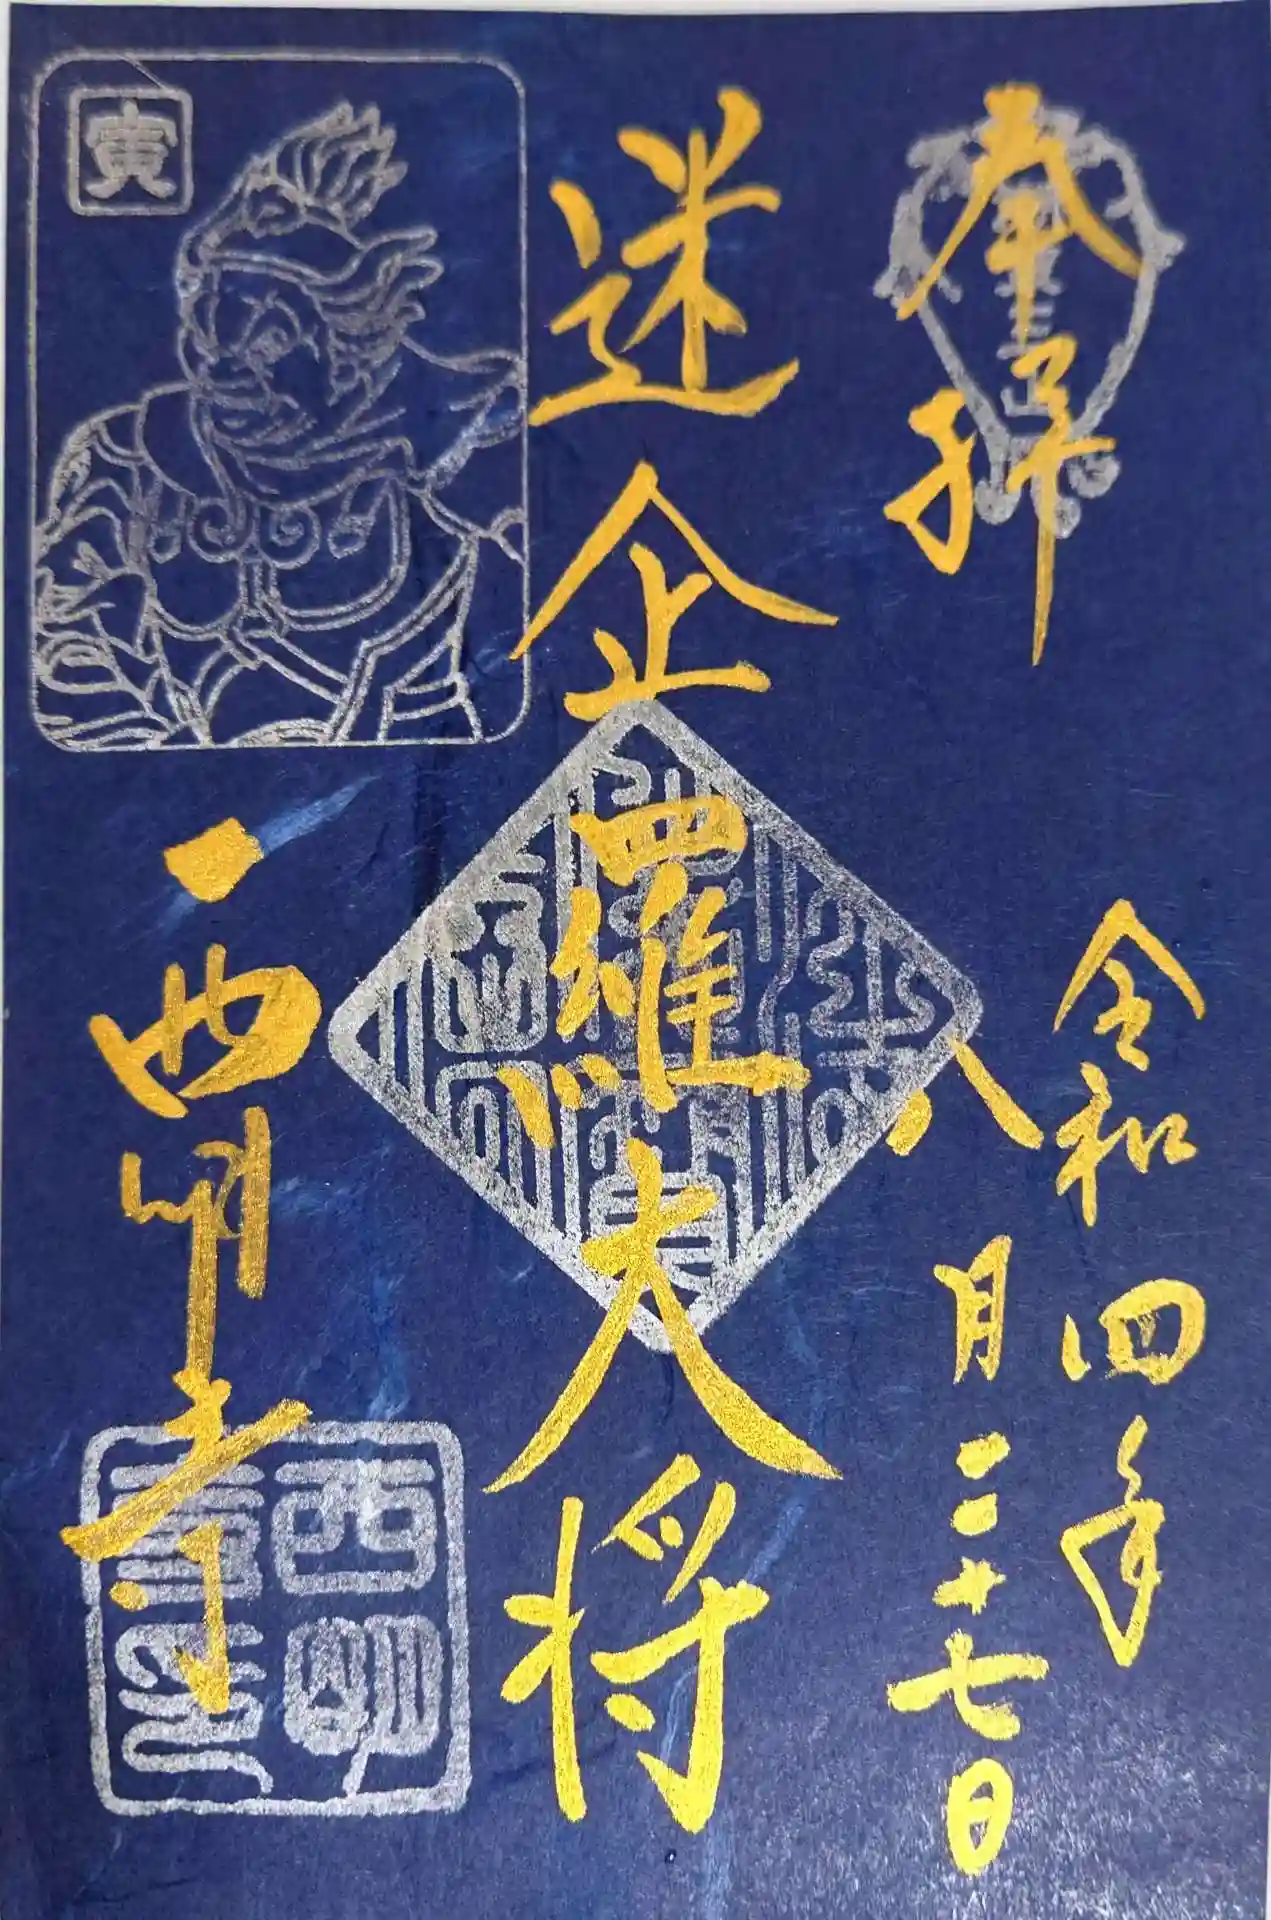 奉拝
令和四年
八月二十七日
迷企羅大将
寅
西明寺